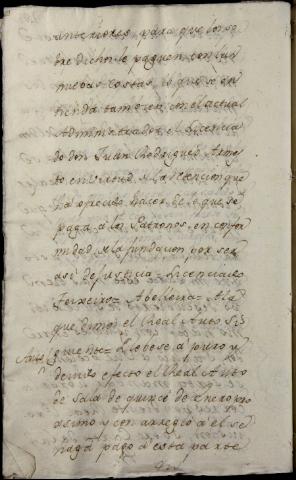 anteriores, para que consse
tre dicho le paguen con sus
nuebas costas, lo que se en
tienda tambien con el actual
Administrador el Licencia
do don Juan Rodriguez Arme
to en virtud de la retencion que
ha ofrecido hacer de lo que se
paga a los Patronos, en confor
midad de la fundacion por ser
asi de justicia = Licenciado
Teixeiro = Abelleira = A la
que dimos el Real Auto Si
Auto guiente = Llebese a puro y
debido efecto el Real Auto
de Sala de quince de enero pro
asimo y con arreglo a el se
haga pago a esta parte